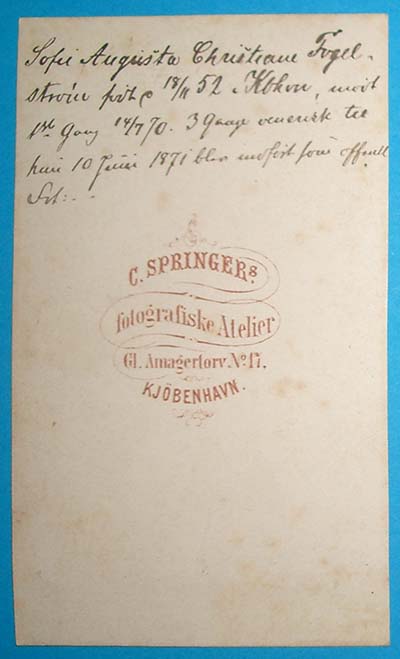 Sofie Augusta Christiane Fogel-
strøm født 18/11 52 i Kbhvn, mødt
1ste Gang 14/7 70. 3 Gange venerisk til
hun 10 Juni 1871 blev indført som offentl
C. SPRINGERs
fotografiske Atelier
Gl. Amagertorv. No 17.
KJÖBENHAVN.